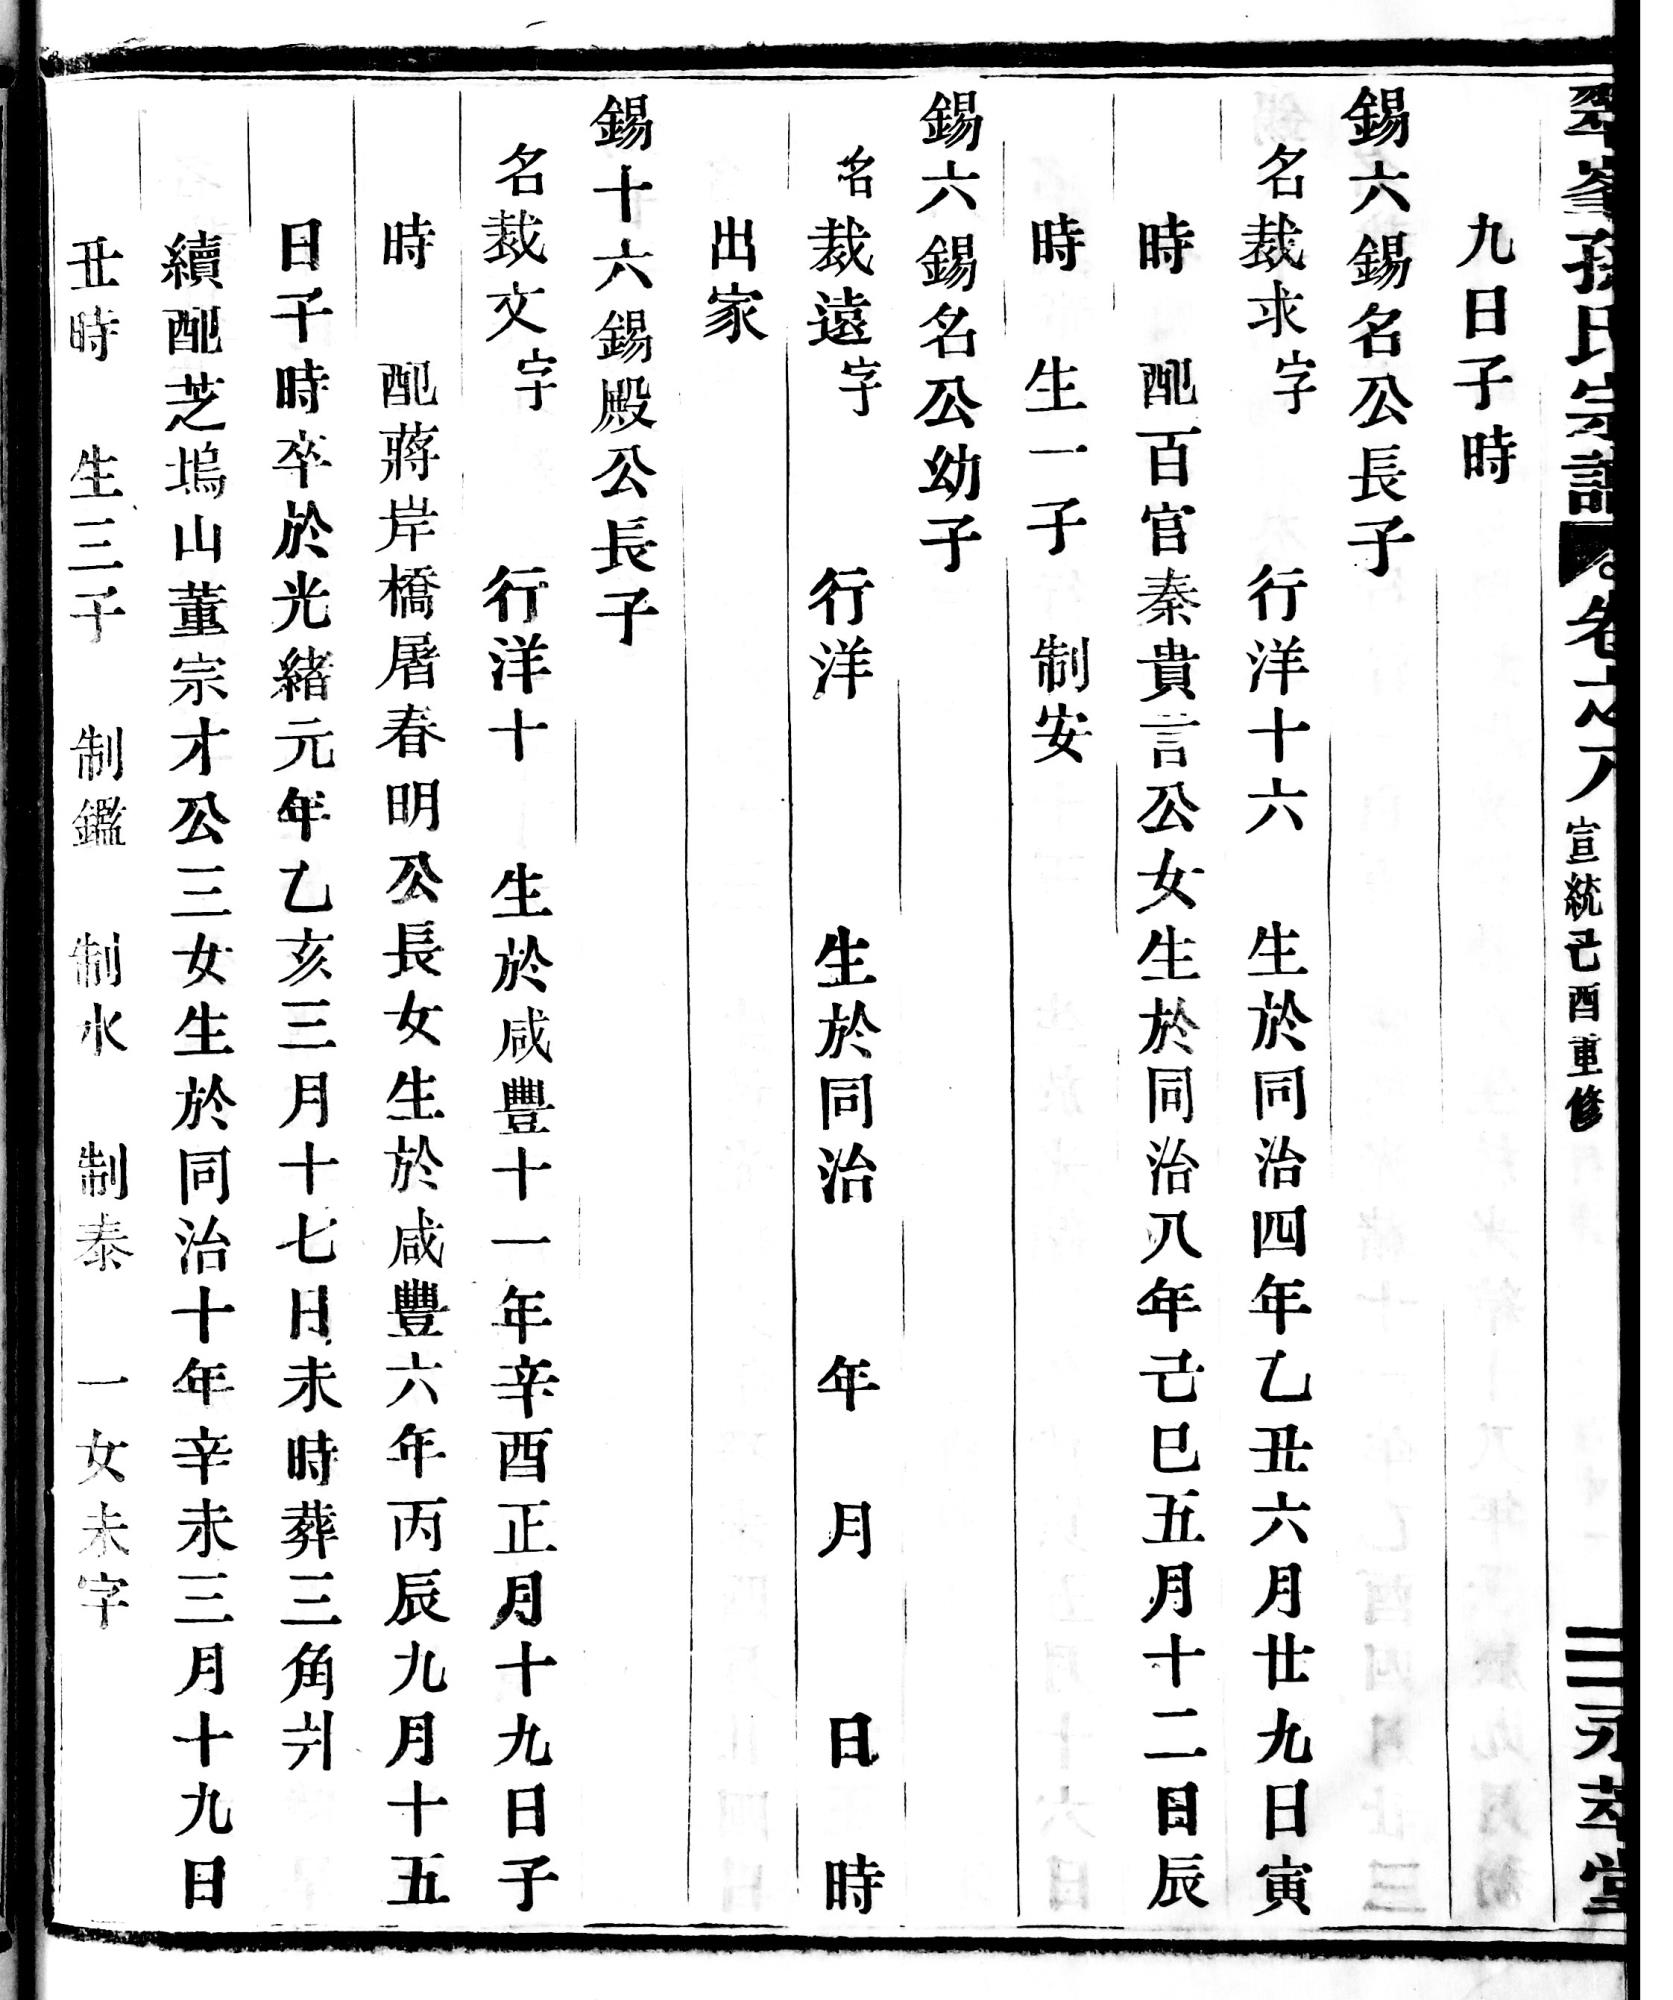 峯孫氏宗譜 卷之八 宣統己酉重修 永萃堂
九日子時
錫六錫名公長子
名裁求字 行洋十六 生於同治四年乙丑六月廿九日寅
時 配百官秦貴言公女生於同治八年己巳五月十二日辰
時 生一子 制安
錫六錫名公幼子
名裁遠字 行洋 生於同治 年 月 日 時
出家
錫十六錫殿公長子
名裁文字 行洋十 生於咸豐十一年辛酉正月十九日子
時 配蔣岸橋屠春明公長女生於咸豐六年丙辰九月十五
日子時卒於光緒元年乙亥三月十七日未時葬三角爿
續配芝塢山董宗才公三女生於同治十年辛未三月十九日
丑時 生三子 制鑑 制水 制泰 一女未字